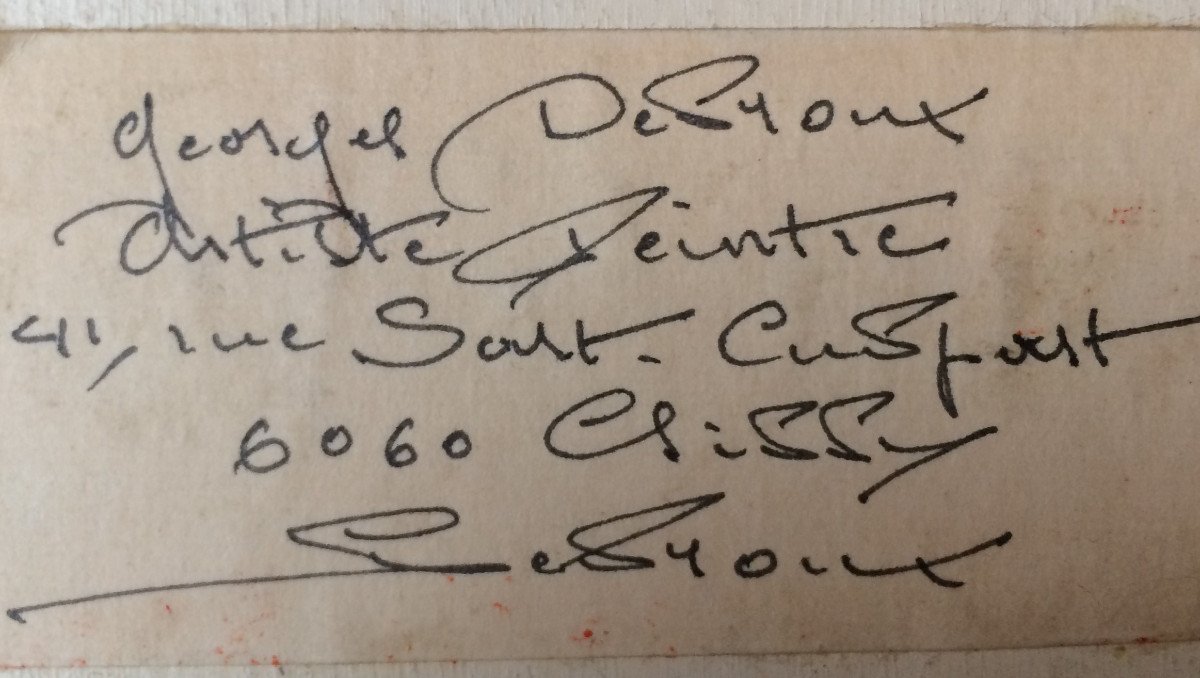 Georges
Artiste Peintre
41, rue Sart-Culpart
6060 Gilly